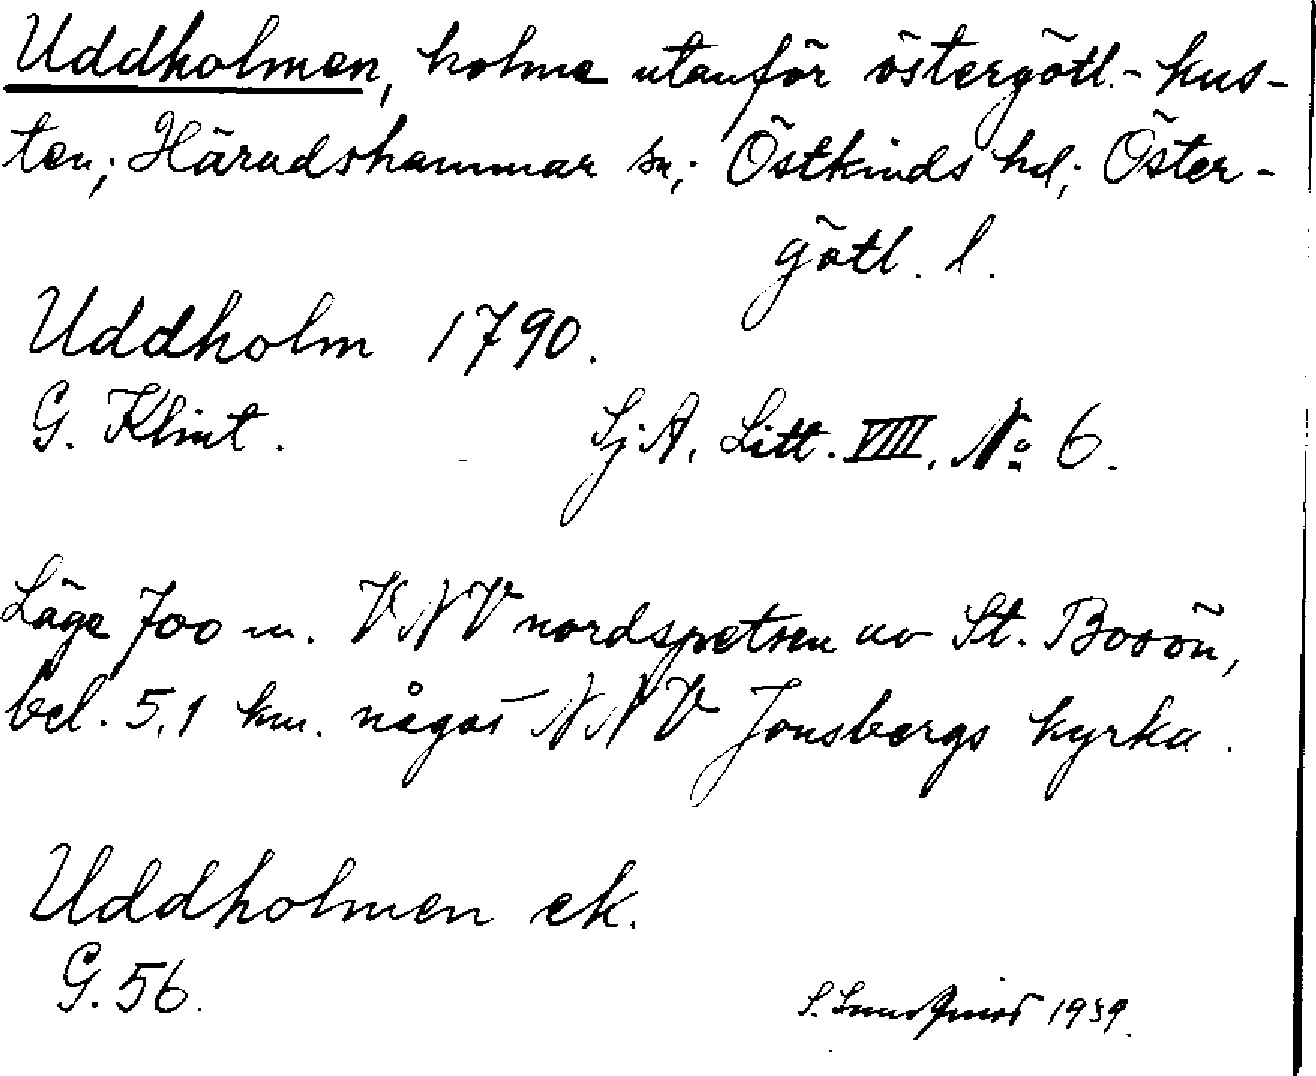 Uddholmen, holme utanför östergötl.-kus-
ten; Häradshammar sn; Östkinds hd; Öster-
götl. l.
Uddholm 1790.
G. Klint. Sj.A. Litt. VIII. No 6.
Läge 700 m. VNV nordspetsen av St. Booön,
bel. 5,1 km. något NNV Jonsbergs kyrka.
Uddholmen ek.
G. 56.
S. Lundqvist 1939.